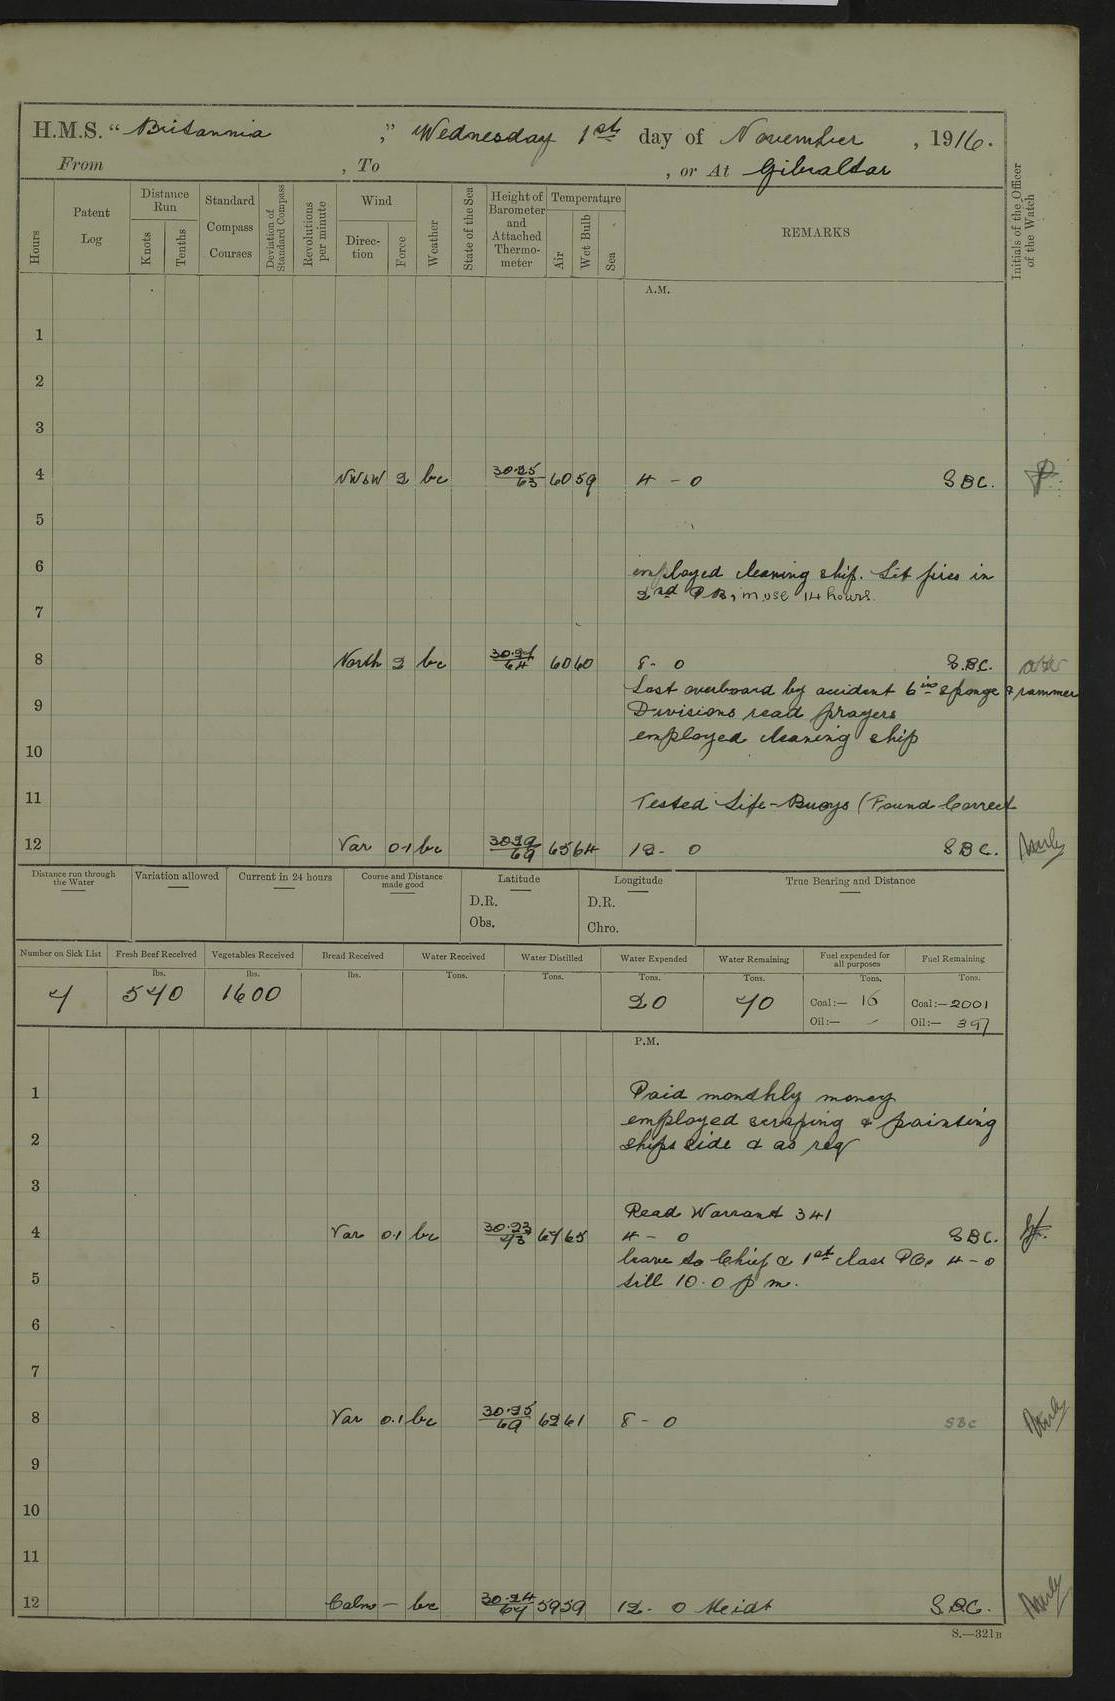 H.M.S. "Britannia," Wednesday 1st day of November, 1916.
From , To , or At Gibraltar
Hours
Patent Log
Distance Run
Knots
Tenths
Standard Compass Courses
Deviation of Standard Compass
Revolutions per minute
Wind
Direction
Force
Weather
State of the Sea
Height of Barometer and Attached Thermometer
Temperature
Air
Wet Bulb
Sea
REMARKS
Initials of the Officer of the Watch
A.M.
1
2
3
4 NWbW 2 bc 30.25 63 60 59 4 - 0 SBC.
5
6 employed cleaning ship. Lit fires in
2nd P.B, in use 14 hours.
7
8 North 2 bc 64 60 60 8 - 0 S.BC.
Lost overboard by accident 6ins sponge & rammer
9 Divisions read prayers
employed cleaning ship
10
11 Tested Life-Buoys (Found Correct
12 Var 0.1 bc 30.29 69 65 64 12 - 0 SBC.
Distance run through the Water
Variation allowed
Current in 24 hours
Course and Distance made good
Latitude
D.R.
Obs.
Longitude
D.R.
Chro.
True Bearing and Distance
Number on Sick List
Fresh Beef Received
Vegetables Received
Bread Received
Water Received
Water Distilled
Water Expended
Water Remaining
Fuel expended for all purposes
Fuel Remaining
lbs. lbs. lbs. Tons. Tons. Tons. Tons. Tons. Tons.
7 540 1600 20 70 Coal:— 16 Coal:—2001
Oil:— - Oil:— 397
P.M.
1 Paid monthly money
employed scraping & painting
2 ships side & as req
3
Read Warrant 341
4 Var 0.1 bc 30.23 73 67 65 4 - 0 SBC.
leave to Chief & 1st class POs 4-0
5 till 10.0 p m.
6
7
8 Var 0.1 bc 30.25 69 62 61 8 - 0 SBC
9
10
11
12 Calm - bc 30.24 67 59 59 12 - 0 Meidt SBC.
S.—321B